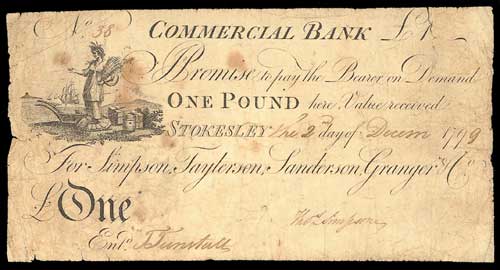 No. 38 COMMERCIAL BANK £1
I Promise to pay the Bearer on Demand
ONE POUND here Value received
STOKESLEY the 2d day of Decem 1799
For Simpson, Taylerson, Sanderson, Granger & Co
£ One
Thos Simpson
Entd. J Tunstall